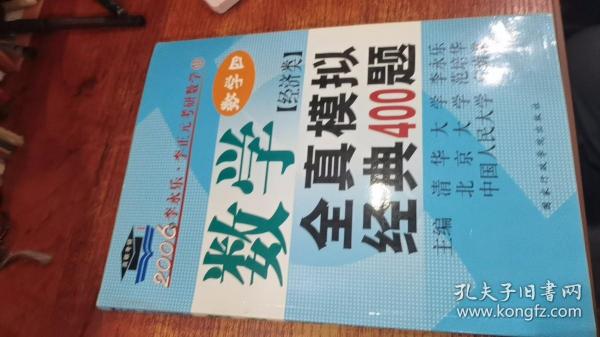 2006李永乐·李正元考研数学
数学四
数学
【经济类】
全真模拟
经典400题
主编
清华大学 李永乐
北京大学 范培华
中国人民大学
国家行政学院出版社
孔夫子旧书网
www.kongfz.com